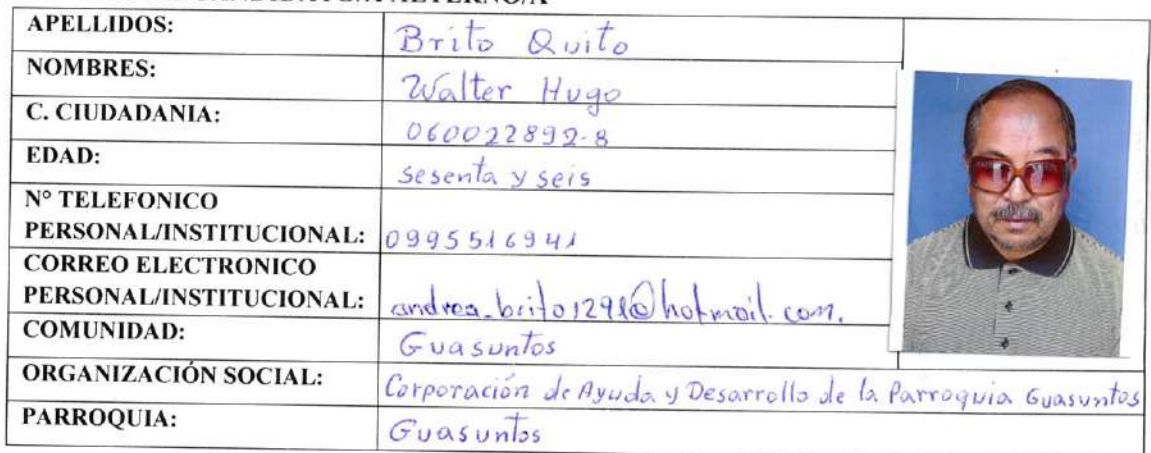 APELLIDOS: Brito Quito
NOMBRES: Walter Hugo
C. CIUDADANIA: 060022892-8
EDAD: sesenta y seis
N° TELEFONICO
PERSONAL/INSTITUCIONAL: 0995516941
CORREO ELECTRONICO
PERSONAL/INSTITUCIONAL: andrea_brito1291@hotmail.com.
COMUNIDAD: Guasuntos
ORGANIZACIÓN SOCIAL: Corporación de Ayuda y Desarrollo de la Parroquia Guasuntos
PARROQUIA: Guasuntos